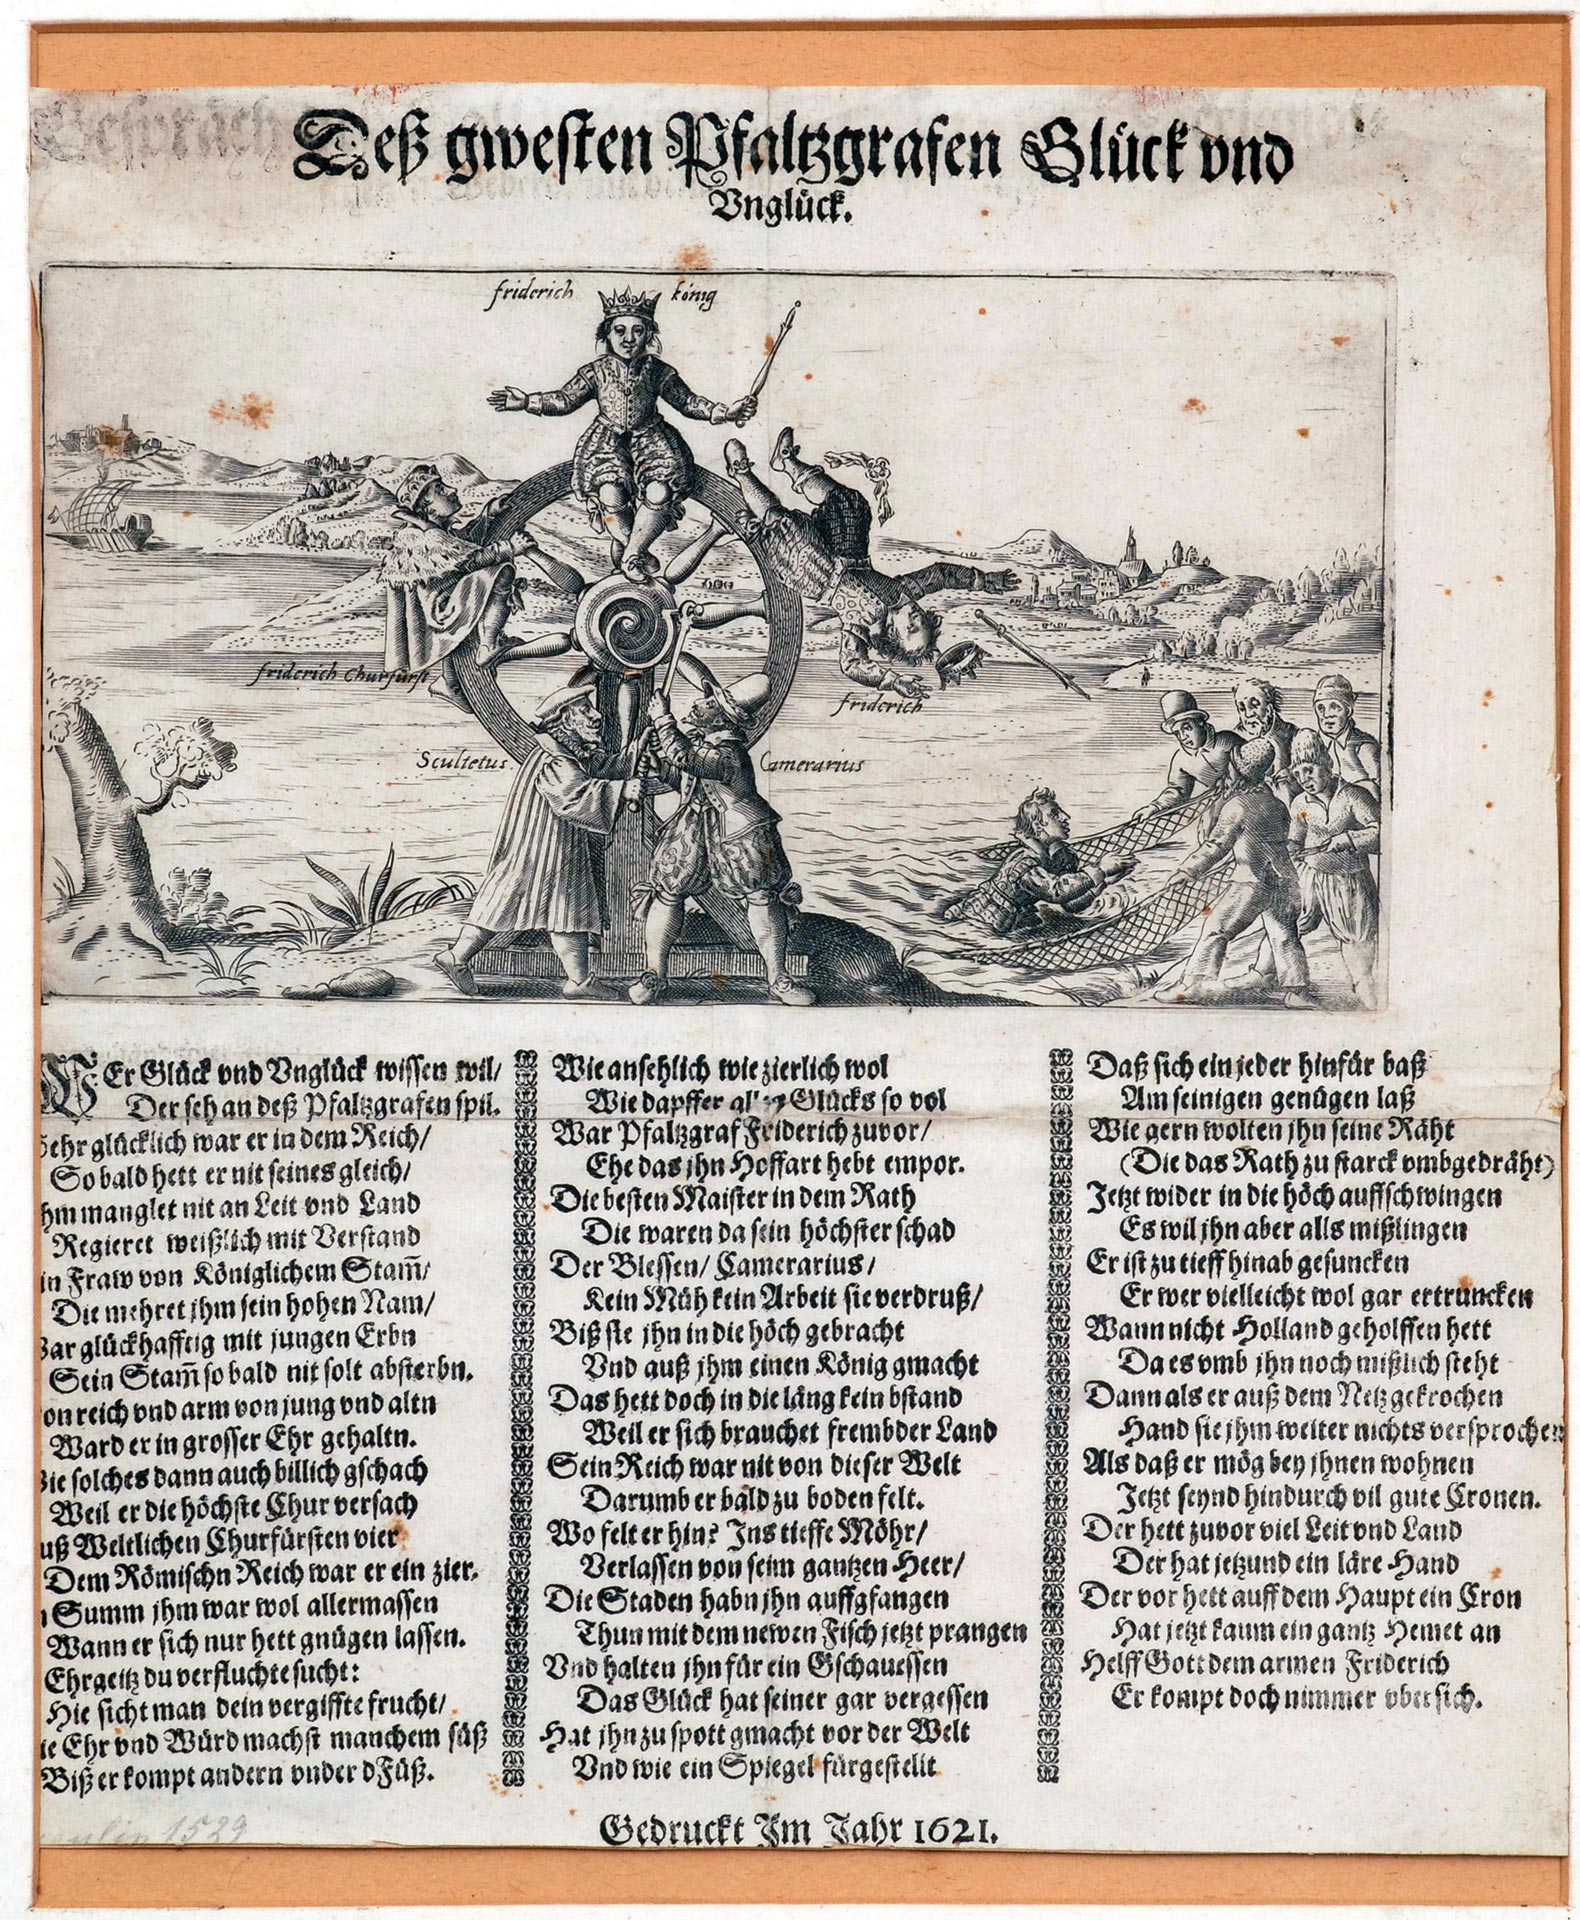 Deß gwesten Pfaltzgrafen Glück vnd
Vnglück.
friderich könig
friderich Churfürst
friderich
Scultetus
Camerarius
WEr Glück vnd Vnglück wissen wil/
Der seh an deß Pfaltzgrafen spil.
Sehr glücklich war er in dem Reich/
So bald hett er nit seines gleich/
hm manglet nit an Leit vnd Land
Regieret weißlich mit Verstand
in Fraw von Königlichem Stam̅/
Die mehret jhm sein hohen Nam/
ar glückhafftig mit jungen Erbn
Sein Stam̅ so bald nit solt absterbn.
on reich vnd arm von jung vnd altn
Ward er in grosser Ehr gehaltn.
ie solches dann auch billich gschach
Weil er die höchste Chur versach
uß Weltlichen Churfürsten vier
Dem Römischn Reich war er ein zier.
n Summ jhm war wol allermassen
Wann er sich nur hett gnügen lassen.
Ehrgeitz du verfluchte sucht:
Hie sicht man dein vergiffte frucht/
ie Ehr vnd Würd machst manchem süß
Biß er kompt andern vnder d Füß.
Wie ansehlich wie zierlich wol
Wie dapffer alles Glücks so vol
War Pfaltzgraf Friderich zuvor/
Ehe das jhn Hoffart hebt empor.
Die besten Maister in dem Rath
Die waren da sein höchster schad
Der Blessen/ Camerarius/
Kein Müh kein Arbeit sie verdruß/
Biß sie jhn in die höch gebracht
Vnd auß jhm einen König gmacht
Das hett doch in die läng kein bstand
Weil er sich brauchet frembder Land
Sein Reich war nit von dieser Welt
Darumb er bald zu boden felt.
Wo felt er hin? Ins tieffe Möhr/
Verlassen von seim gantzen Heer/
Die Staden habn jhn auffgfangen
Thun mit dem newen Fisch jetzt prangen
Vnd halten jhn für ein Gschauessen
Das Glück hat seiner gar vergessen
Hat jhn zu spott gmacht vor der Welt
Vnd wie ein Spiegel fürgestellt
Daß sich ein jeder hinfür baß
Am seinigen genügen laß
Wie gern wolten jhn seine Räht
(Die das Rath zu starck vmbgedräht)
Jetzt wider in die höch auffschwingen
Es wil jhn aber alls mißlingen
Er ist zu tieff hinab gesuncken
Er wer vielleicht wol gar ertruncken
Wann nicht Holland geholffen hett
Da es vmb jhn noch mißlich steht
Dann als er auß dem Netz gekrochen
Hand sie jhm weiter nichts versprochen
Als daß er mög bey jhnen wohnen
Jetzt seynd hindurch vil gute Cronen.
Der hett zuvor viel Leit vnd Land
Der hat jetzund ein läre Hand
Der vor hett auff dem Haupt ein Cron
Hat jetzt kaum ein gantz Hemet an
Helff Gott dem armen Friderich
Er kompt doch nimmer vber sich.
Gedruckt Im Jahr 1621.
1529